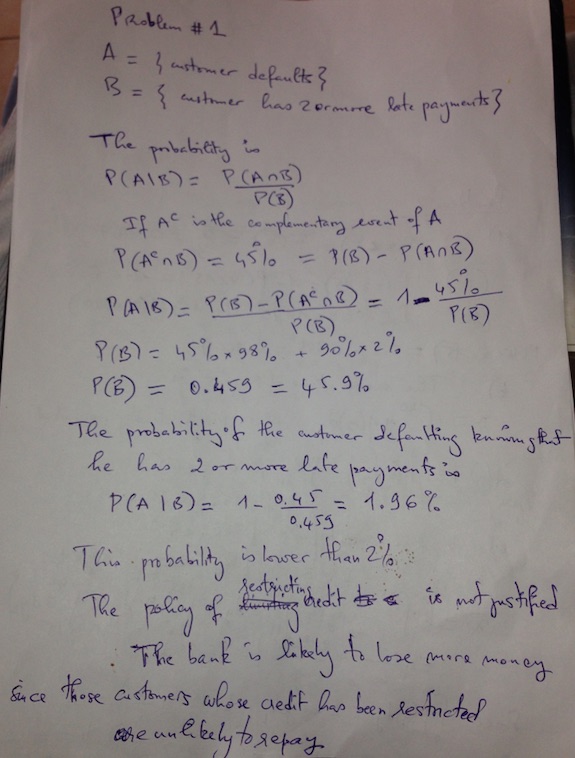 Problem # 1
A = { customer defaults }
B = { customer has 2 or more late payments }
The probability is
P(A|B) = P(A∩B) / P(B)
If Aᶜ is the complementary event of A
P(Aᶜ∩B) = 45% = P(B) - P(A∩B)
P(A|B) = P(B) - P(Aᶜ∩B) / P(B) = 1 - 45% / P(B)
P(B) = 45% × 98% + 90% × 2%
P(B) = 0.459 = 45.9%
The probability of the customer defaulting knowing that
he has 2 or more late payments is
P(A|B) = 1 - 0.45 / 0.459 = 1.96%
This probability is lower than 2%
The policy of restricting credit is not justified
The bank is likely to lose more money
since those customers whose credit has been restricted
are unlikely to repay